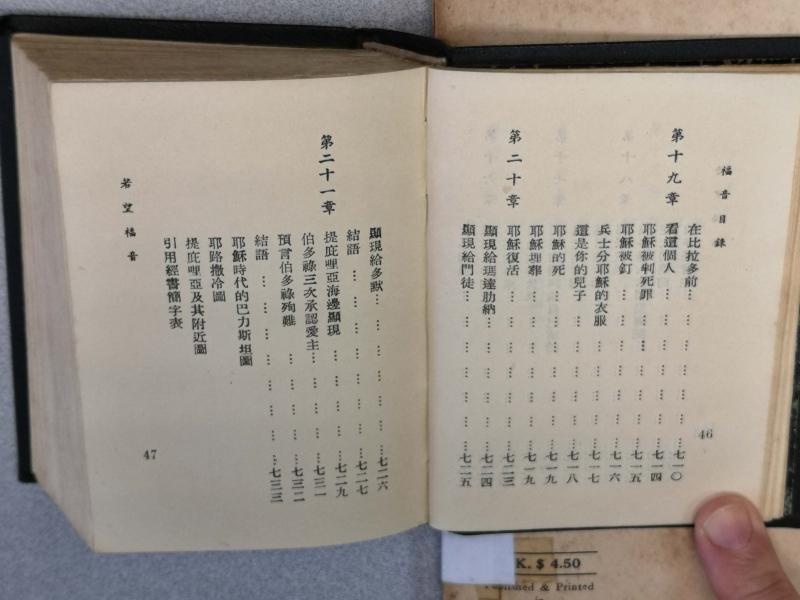 福音目錄
第十九章
在比拉多前… … … … … …七一〇
看這個人 … … … … … …七一四
耶穌被判死罪 … … … … …七一五
耶穌被釘 … … … … … …七一六
兵士分耶穌的衣服 … … … …七一七
這是你的兒子 … … … … …七一八
耶穌的死 … … … … … …七一九
耶穌埋葬 … … … … … …七一九
第二十章
耶穌復活 … … … … … …七二三
顯現給瑪達肋納… … … … …七二四
顯現給門徒… … … … … …七二五
46
顯現給多默… … … … … …七二六
結語 … … … … … … …七二七
第二十一章
提庇哩亞海邊顯現 … … … …七二九
伯多祿三次承認愛主… … … …七三一
預言伯多祿殉難 … … … … …七三二
結語 … … … … … … …七三三
耶穌時代的巴力斯坦圖
耶路撒冷圖
提庇哩亞及其附近圖
引用經書簡字表
若望福音
47
K. $ 4.50
Published & Printed